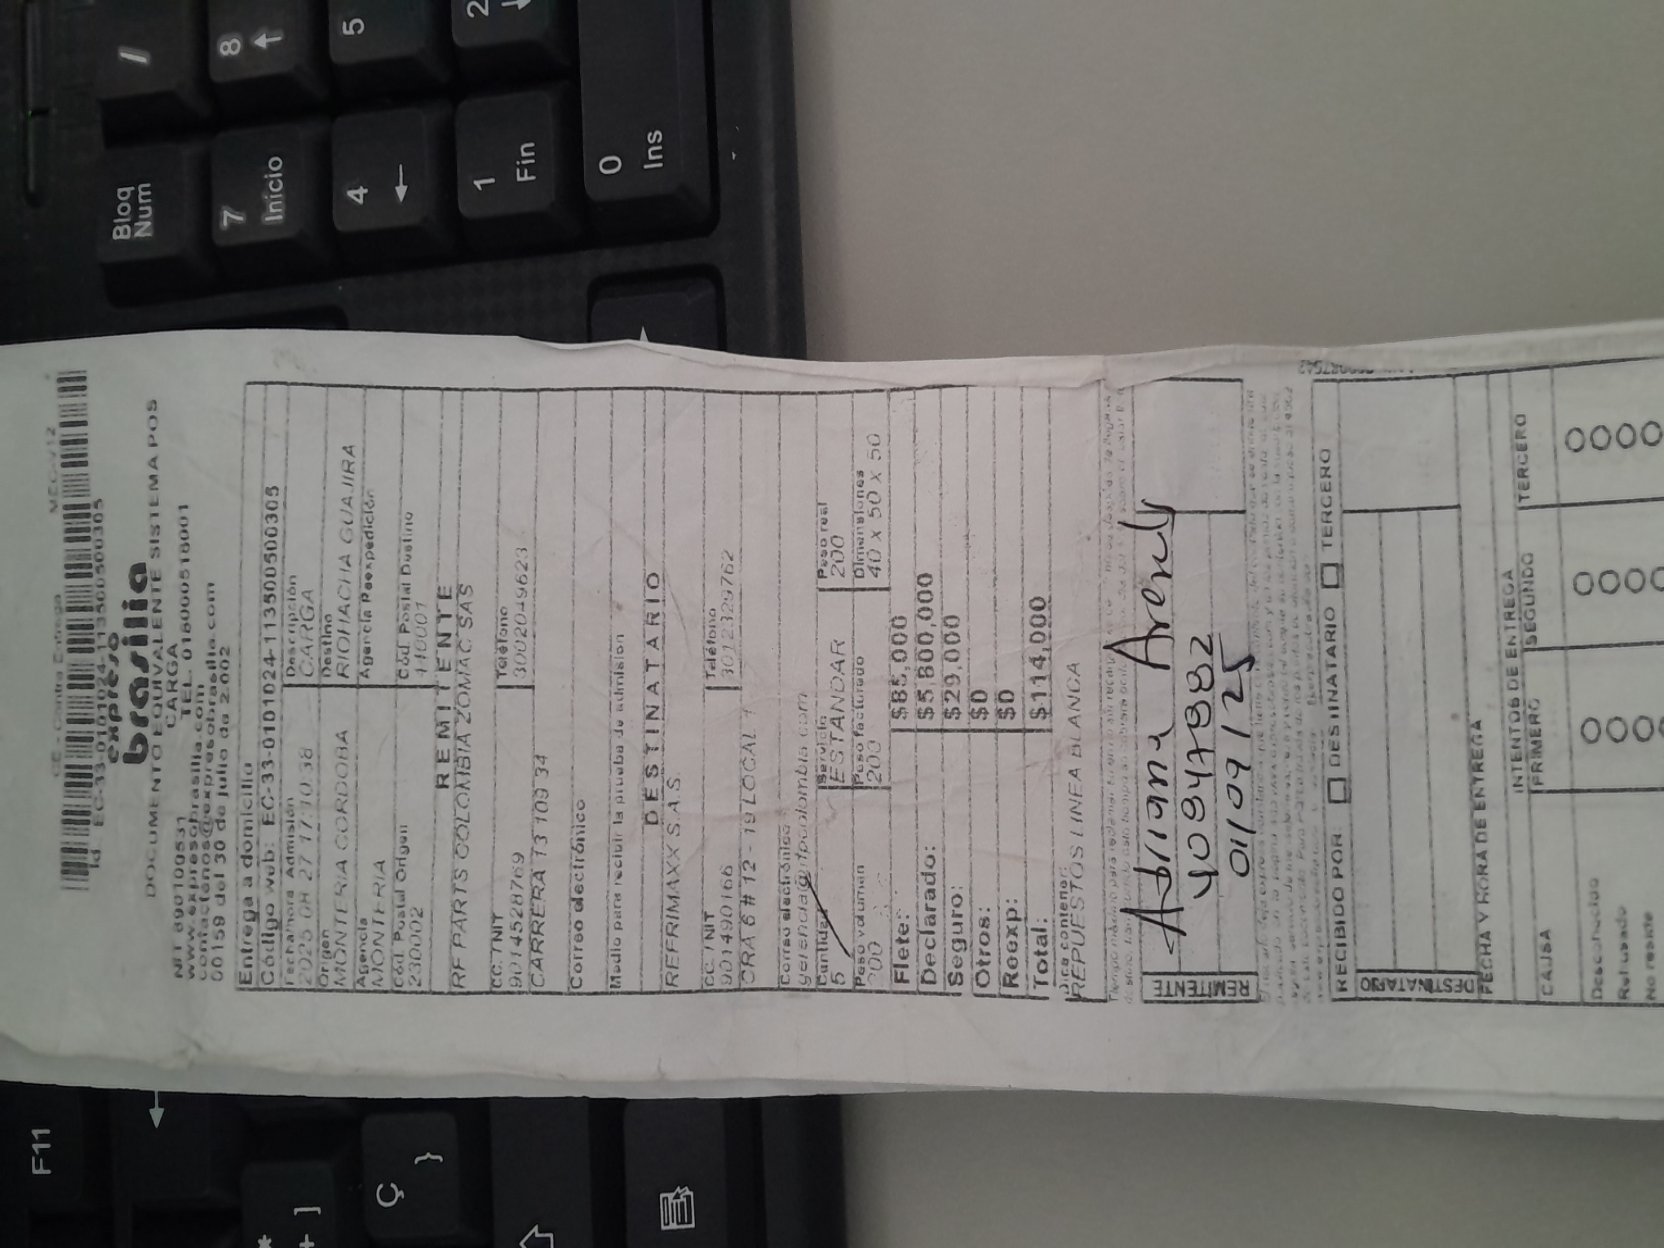 CE - Contra Entrega
Id : EC-33-0101024-113500500305
expreso
brasilia
DOCUMENTO EQUIVALENTE SISTEMA POS
CARGA
NIT 890100531 TEL. 018000518001
www.expresobrasilia.com
contactenos@expresobrasilia.com
00159 del 30 de julio de 2.002
Entrega a domicilio
Código web: EC-33-0101024-113500500305
Fecha/hora Admisión Descripción
2025 08 27 17:10:38 CARGA
Origen Destino
MONTERIA CORDOBA RIOHACHA GUAJIRA
Agencia Agencia Reexpedición
MONTERIA
Cód. Postal Origen Cód. Postal Destino
230002 110001
REMITENTE
RF PARTS COLOMBIA ZOMAC SAS
CC. / NIT Teléfono
9014528769 3002049623
CARRERA 13 109 34
Correo electrónico
Medio para recibir la prueba de admision
DESTINATARIO
REFRIMAXX S.A.S.
CC. / NIT Teléfono
901490166 3012329762
CRA 6 # 12 - 19 LOCAL 1
Correo electrónico
gerencia@rfpcolombia.com
Cantidad Servicio Peso real
5 ESTANDAR 200
Peso volumen Peso facturado Dimensiones
200 200 40 x 50 x 50
Flete: $85,000
Declarado: $5,800,000
Seguro: $29,000
Otros: $0
Reexp: $0
Total: $114,000
Dice contener:
REPUESTOS LINEA BLANCA
REMITENTE
Adriana Arends
40947882
01/09/25
RECIBIDO POR: DESTINATARIO TERCERO
DESTINATARIO
FECHA Y HORA DE ENTREGA
INTENTOS DE ENTREGA
CAUSA PRIMERO SEGUNDO TERCERO
Desconocido
Rehusado
No reside
Bloq
Num
/
7
Inicio
8
4
5
1
Fin
2
0
Ins
F11
*
+
]
Ç
}